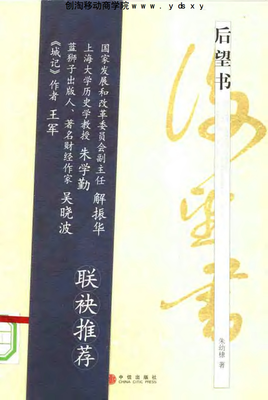 创淘移动商学院 www.ydsxy
后望书
後望書
朱幼棣 著
国家发展和改革委员会副主任 解振华
上海大学历史学教授 朱学勤
蓝狮子出版人、著名财经作家 吴晓波
《城记》作者 王军
联袂推荐
中信出版社
CHINA CITIC PRESS